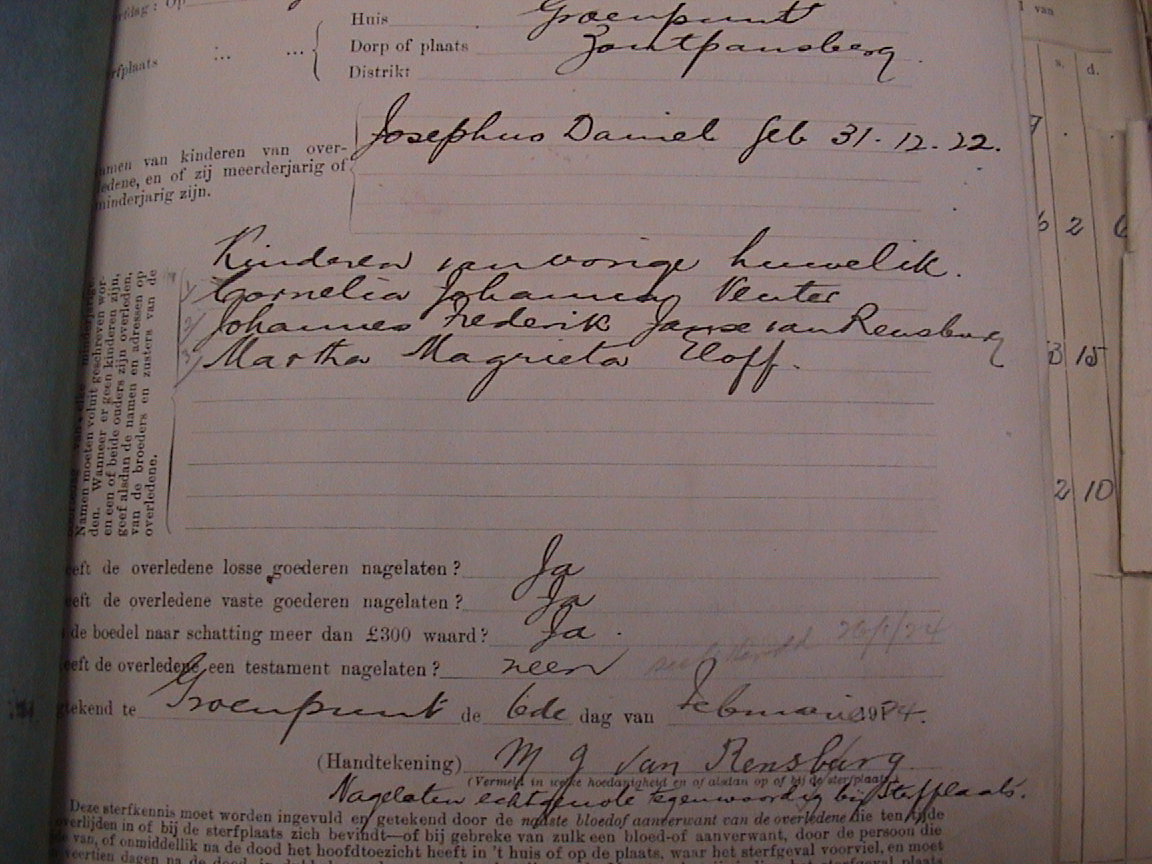 Huis Groenpunt
Dorp of plaats Zoutpansberg.
Distrikt
Josephus Daniel geb 31.12.22.
namen van kinderen van over-
ledene, en of zij meerderjarig of
minderjarig zijn.
Kinderen van vorige huwelik.
1/ Cornelia Johanna Venter
2/ Johannes Frederik Janse van Rensburg
3/ Martha Magrieta Eloff.
Namen moeten voluit geschreven wor-
den. Wanneer er geen kinderen zijn,
en een of beide ouders zijn overleden,
geef alsdan de namen en adressen op
van de broeders en zusters van de
overledene.
eeft de overledene losse goederen nagelaten? Ja
eeft de overledene vaste goederen nagelaten? Ja
de boedel naar schatting meer dan £300 waard? Ja.
eeft de overledene een testament nagelaten? neen 26/1/24
etekend te Groenpunt de 6de dag van Februarie 1924.
(Handtekening) M J van Rensburg
(Vermeld in welke hoedanigheid en of alsdan op of bij de sterfplaats)
Nagelaten echtgenote tegenwoordig bij sterfplaats.
Deze sterfkennis moet worden ingevuld en getekend door de naaste bloedof aanverwant van de overledene die ten tijde
overlijden in of bij de sterfplaats zich bevindt—of bij gebreke van zulk een bloed-of aanverwant, door de persoon die
van, of onmiddellik na de dood het hoofdtoezicht heeft in 't huis of op de plaats, waar het sterfgeval voorviel, en moet
veertien dagen na de dood
van
s. d.
6 2 6
3 15
2 10